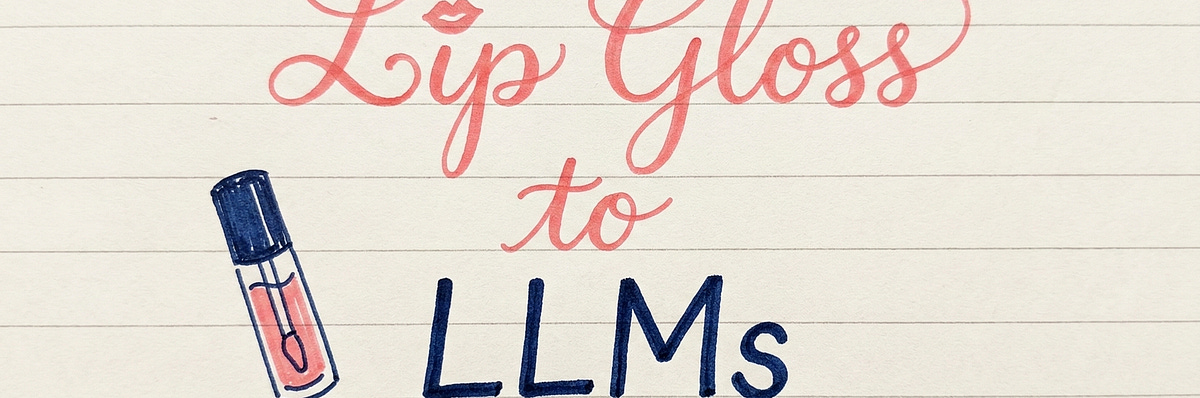 Lip Gloss
to
LLMs